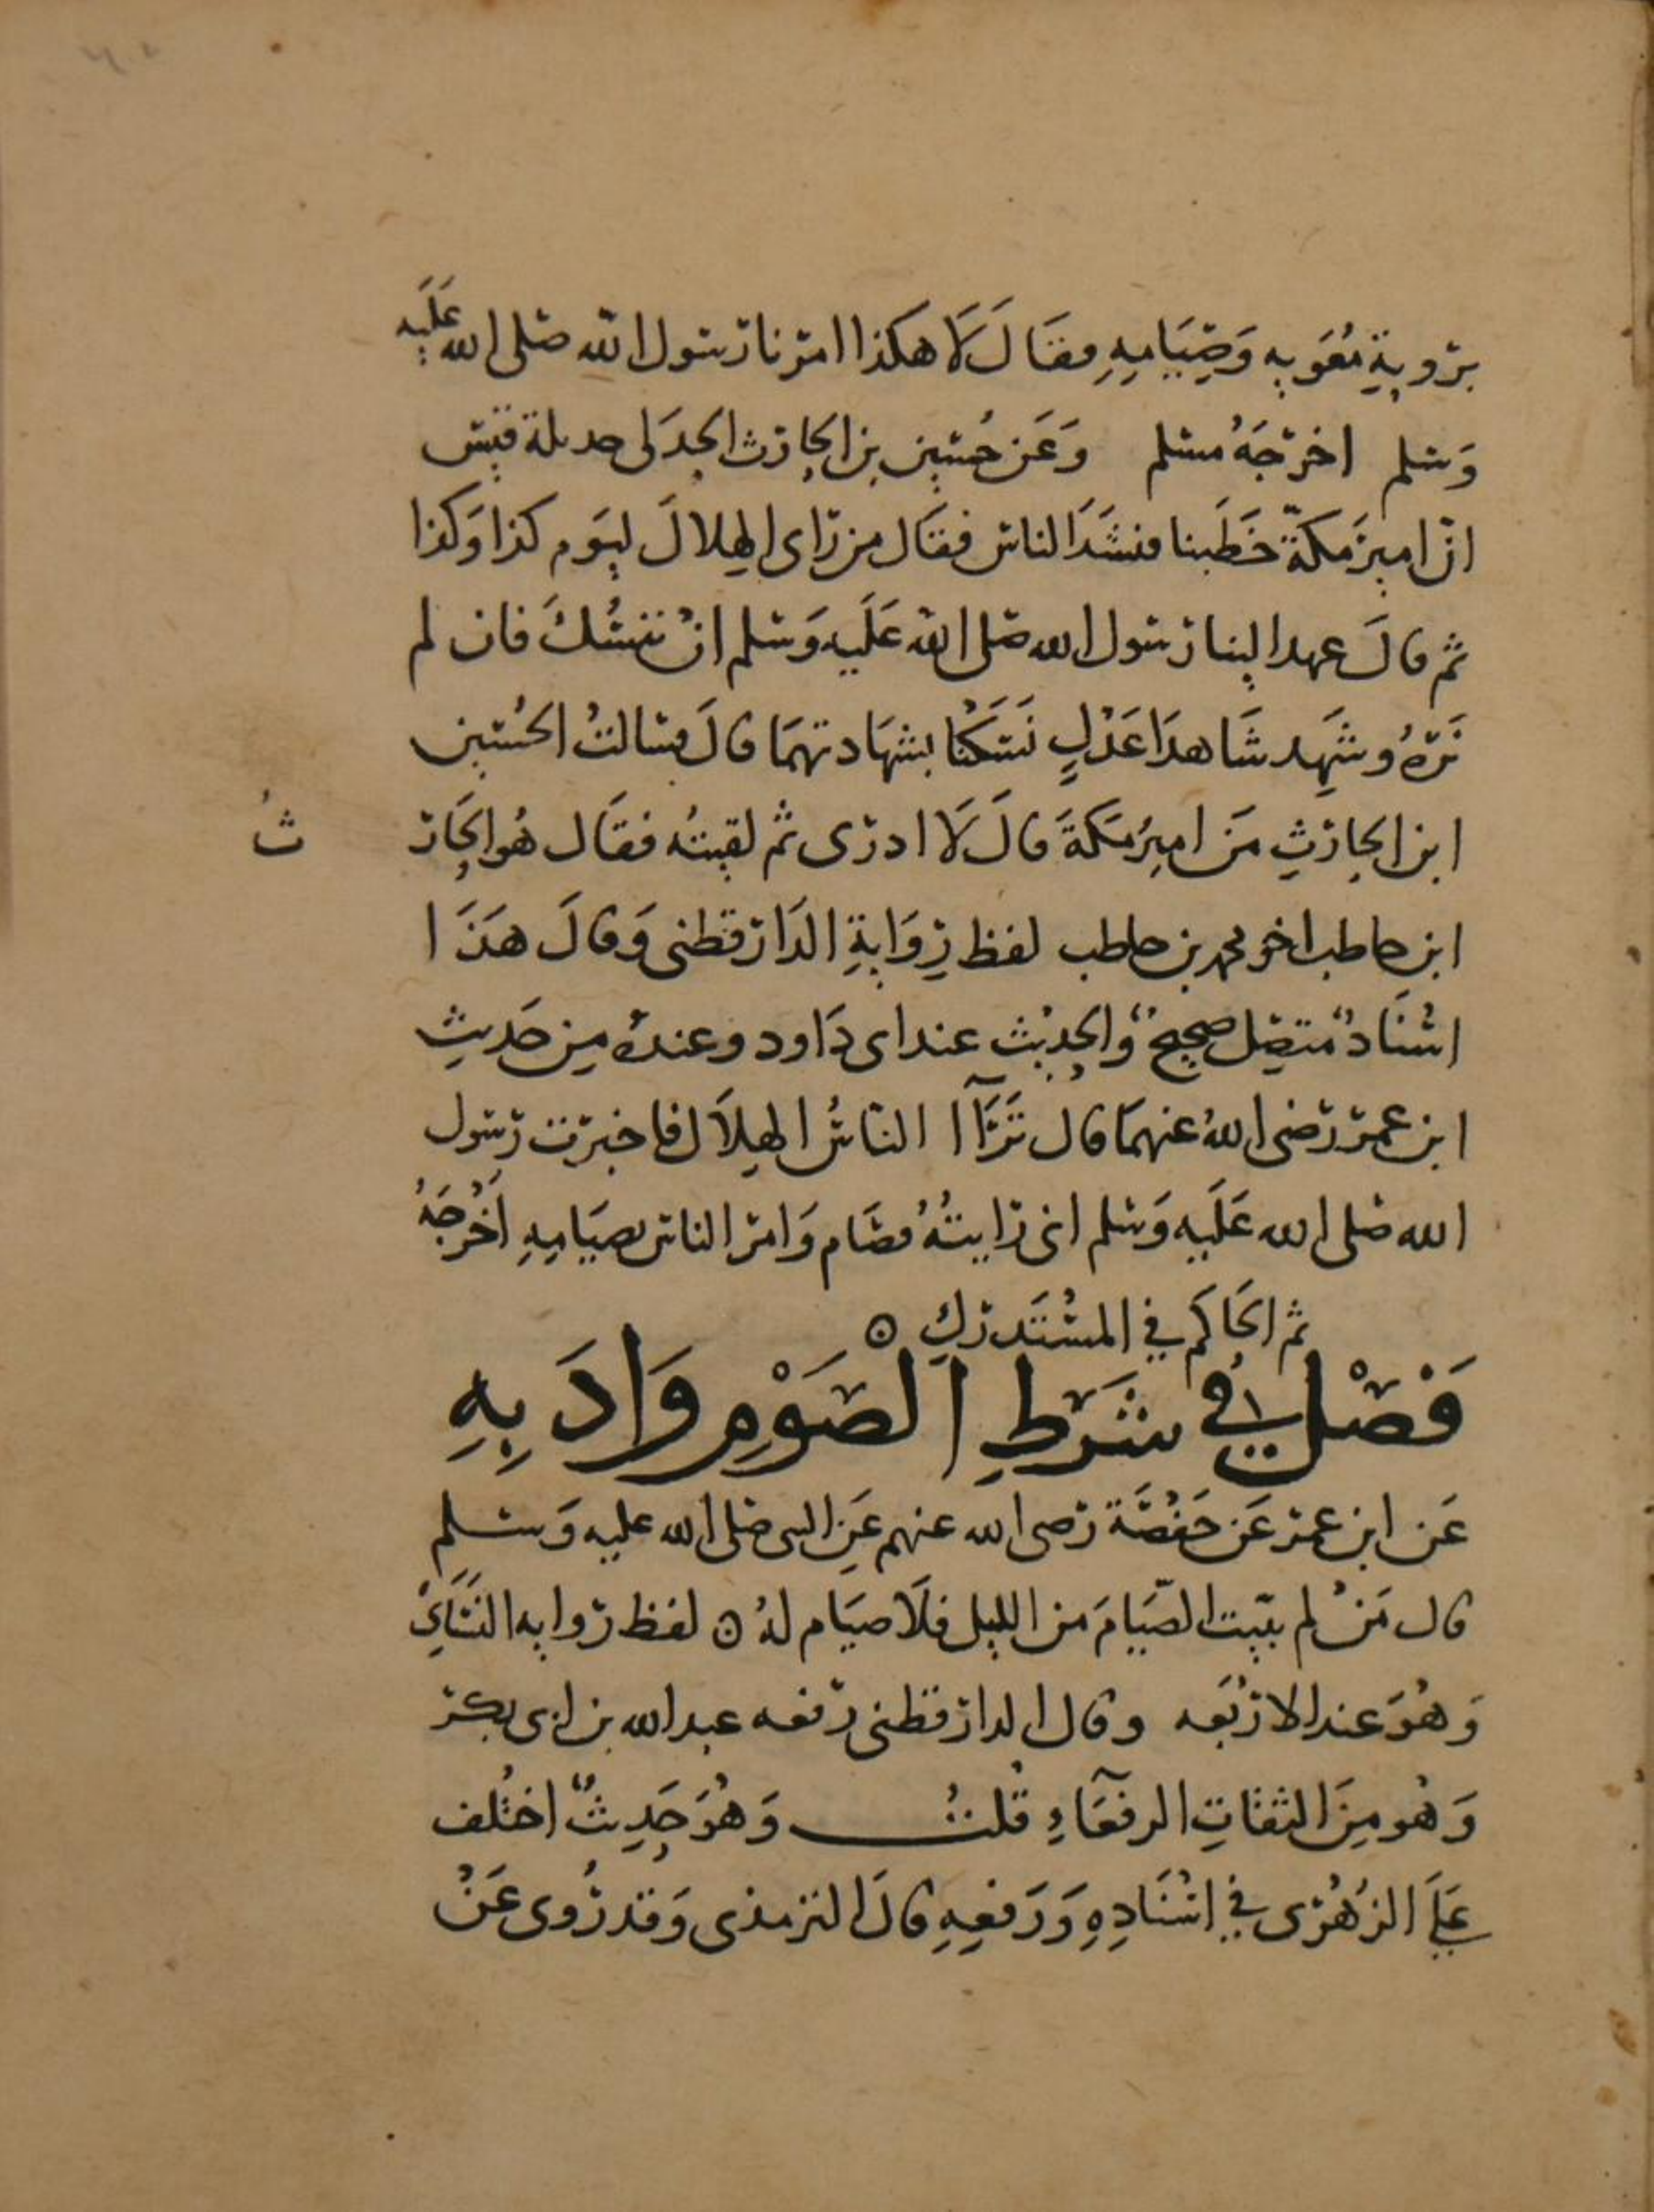 بروية معويه وَصِيَامِهِ فقَالَ لَا هكذا امرنا رسول الله صلى الله عَلَيه
وَسلم اخرجَهُ مسلم وَعَن حُسين بن الحارث الجدَلى جديلة قيس
ان امير مكة خَطَبنا فنشَدَ الناس فقال من رَاى الهِلالَ ليوَم كذا وَكذا
ثم قالَ عهد الينا رسول الله صلى الله عَلَيه وَسلم انْ ننسُكَ فان لم
نَرَهُ وشَهِد شَاهدَا عَدْلٍ نَسَكْنَا بشهَادتهمَا قالَ فسالتُ الحُسين
ابن الحارثِ مَن اميرُ مَكةَ قالَ لَا ادرى ثم لقيتُه فقَال هُو الحَار
ثُ
ابن حاطب اخو محمد بن حاطب لفظ رِوَايةِ الدَارقطنى وَقالَ هَذَا
اسْنَادٌ متصِل صحيحٌ وَالحديْث عند ابى دَاود وعندهُ مِن حَديثِ
ابن عمر رَضى اللهُ عنهمَا قال تَرَآا الناسُ الهِلَال فاخبرت رَسول
الله صلى الله عَلَيه وَسلم انى رَايتُهُ فصَام وَامر الناس بصيَامِهِ اَخْرجَهُ
ثم الحَاكم في المسْتَدركِ ه
فَصْل في شَرَطِ الصَوْمِ وَادَ بِهِ
عَن ابن عمر عَن حَفْصَة رَضى الله عنهم عَنِ النبى صَلى الله عليه وَسلم
قال مَنْ لم يبيت الصّيَامَ من الليل فلَا صيَام لهُ ه لفظ رَوايه النَسَايْ
وَهُوَ عند الاربَعه وقال الدارقطنى رَفعه عبد الله بن ابى بكر
وَهُو مِنَ الثقاتِ الرفعَآءِ قُلتُ وَهُوَ حَدِيثٌ اختُلف
عَلَى الزهْرى في اسْنَادِهِ وَرَفعِهِ قالَ الترمذى وَقد رُوى عَنْ